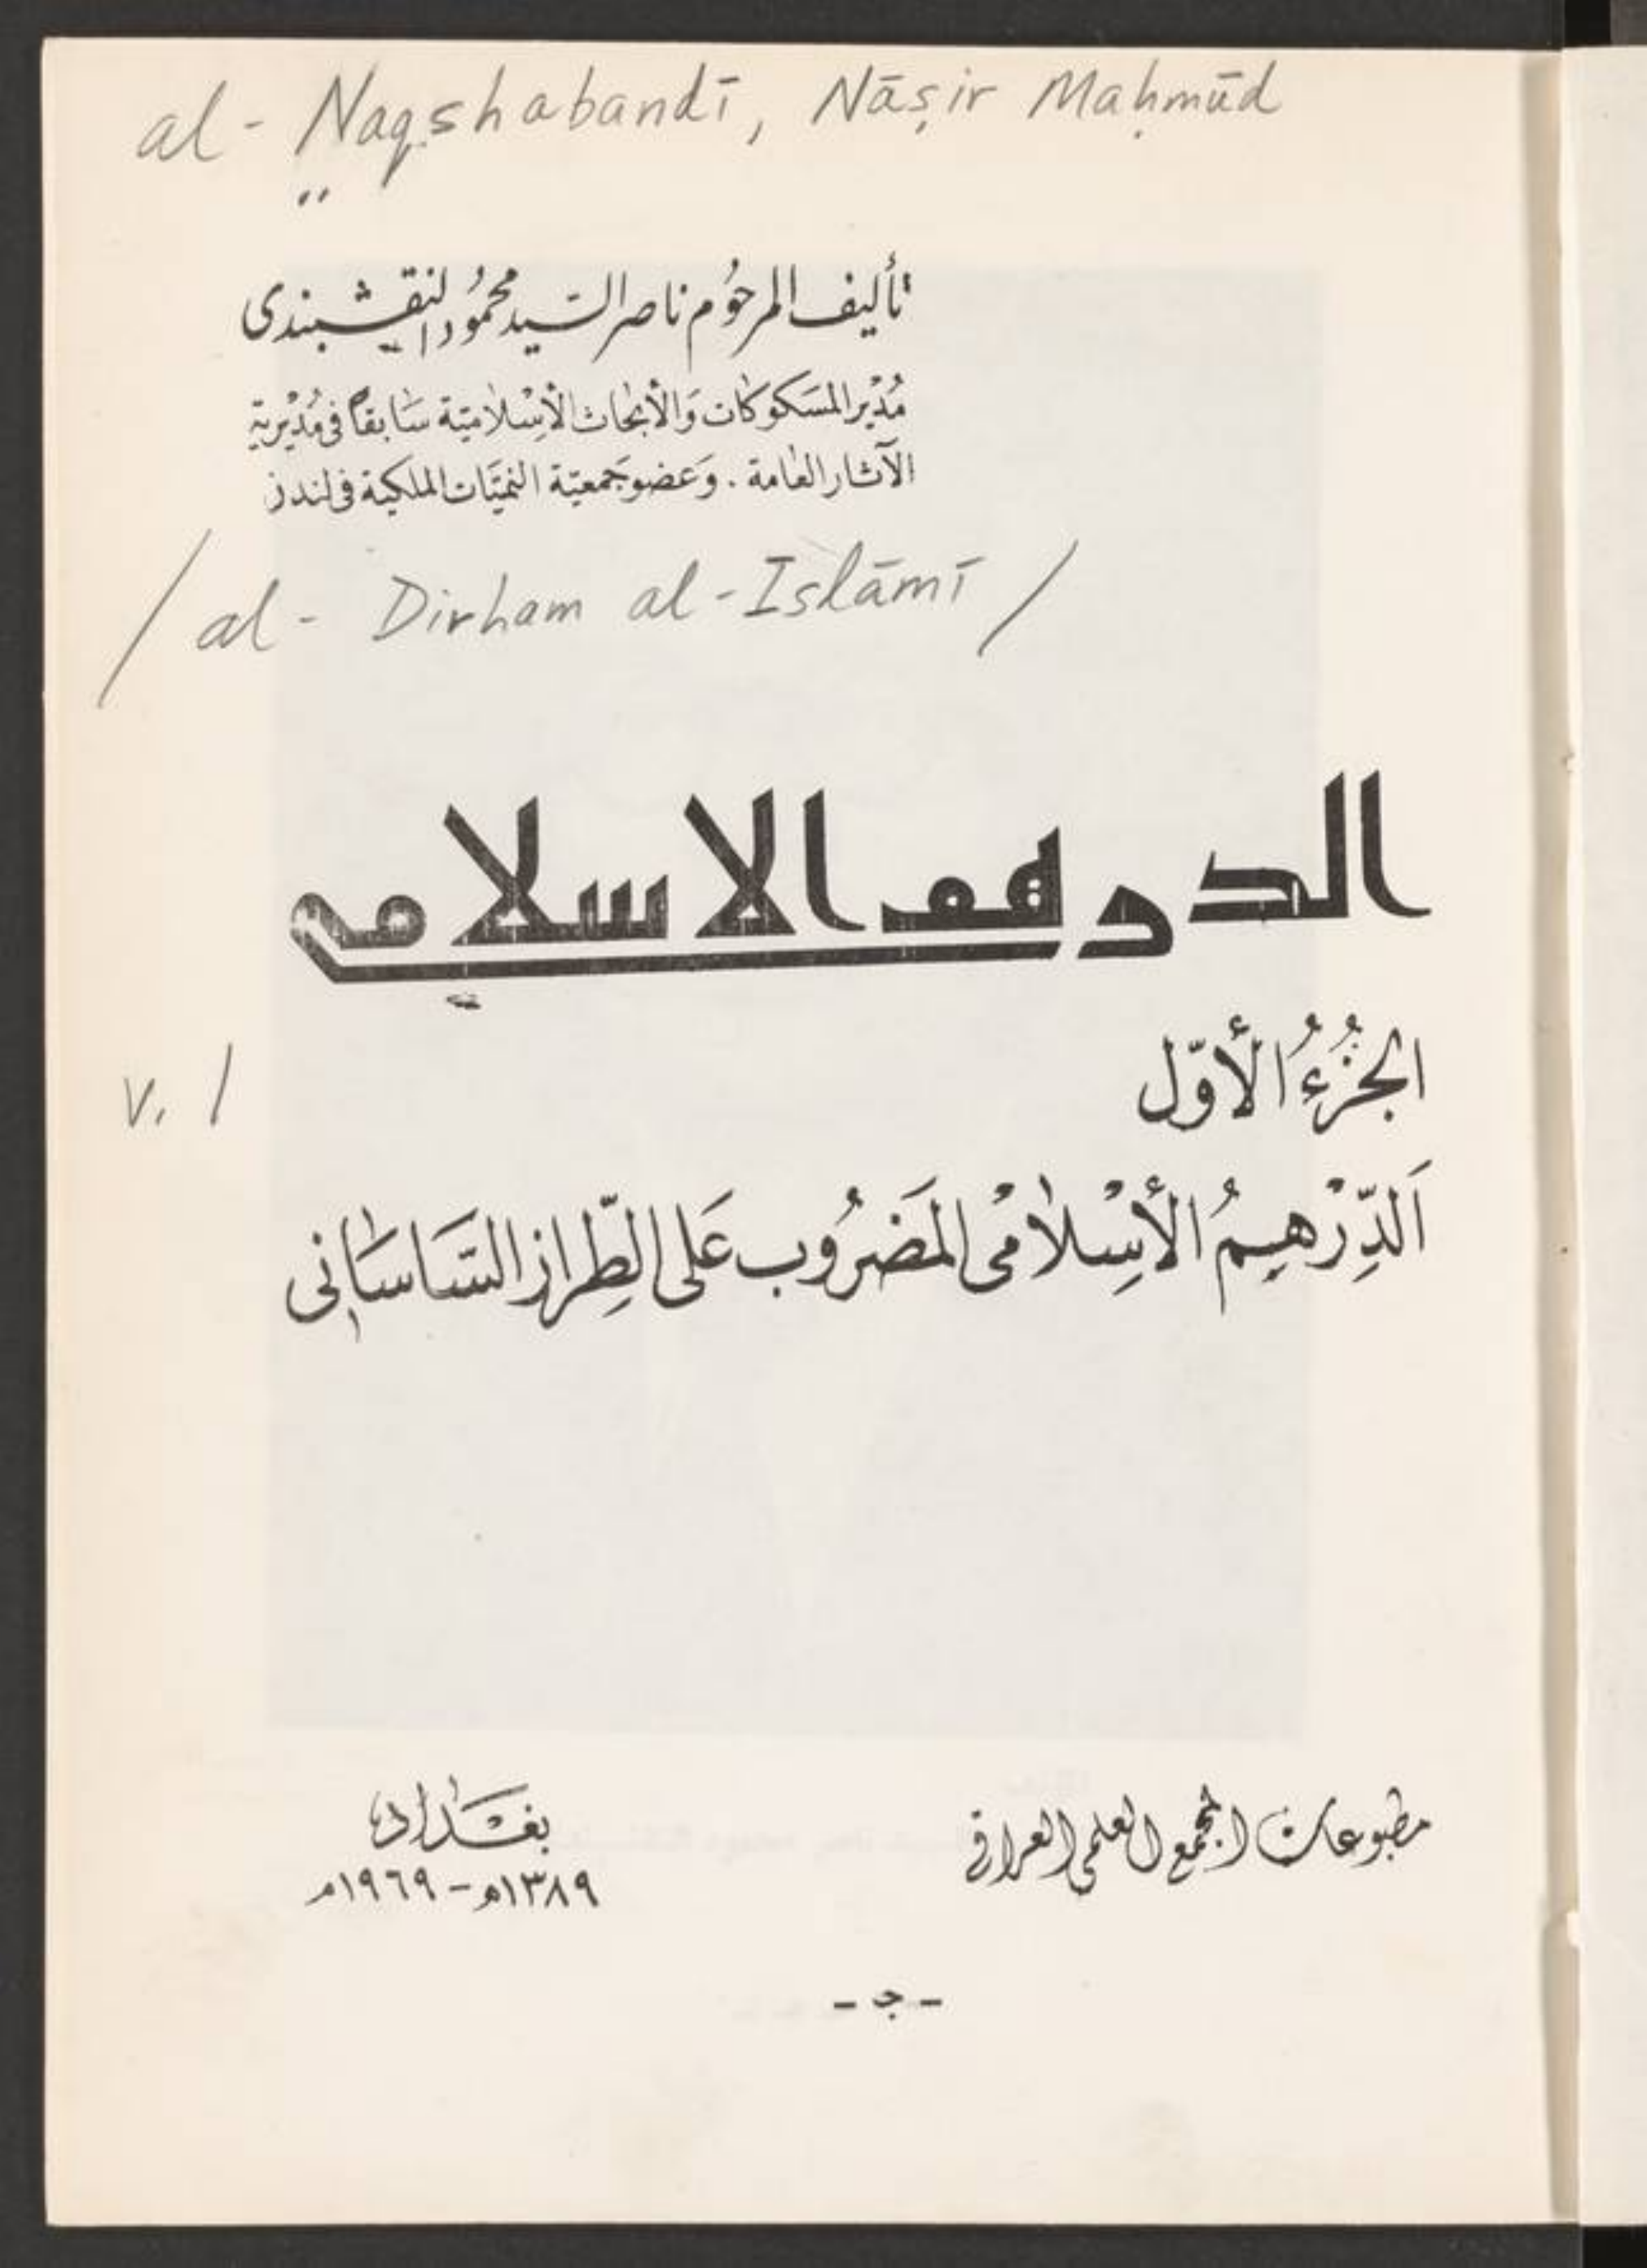 al-Naqshabandī, Nāṣir Maḥmūd
تأليف المرحُوم ناصر السّيد محمُود النقشبندى
مُدْير المسَكوكات وَالأبحاث الأِسْلاميّة سَابقاً في مُدْيريّة
الآثار العامة . وَعضو جَمعيّة النميّات الملكية في لندن
/ al-Dirham al-Islāmī /
الدرهم الاسلامي
الجُزُءُ الأوّل
v. 1
اَلدِّرْهيمُ الأِسْلامْى المَضرُوب عَلى الطِّراز السَّاسَانى
مطبوعات المجمع العلمي العراقي
بغـَـداد
١٣٨٩هـ - ١٩٦٩م
- ج -